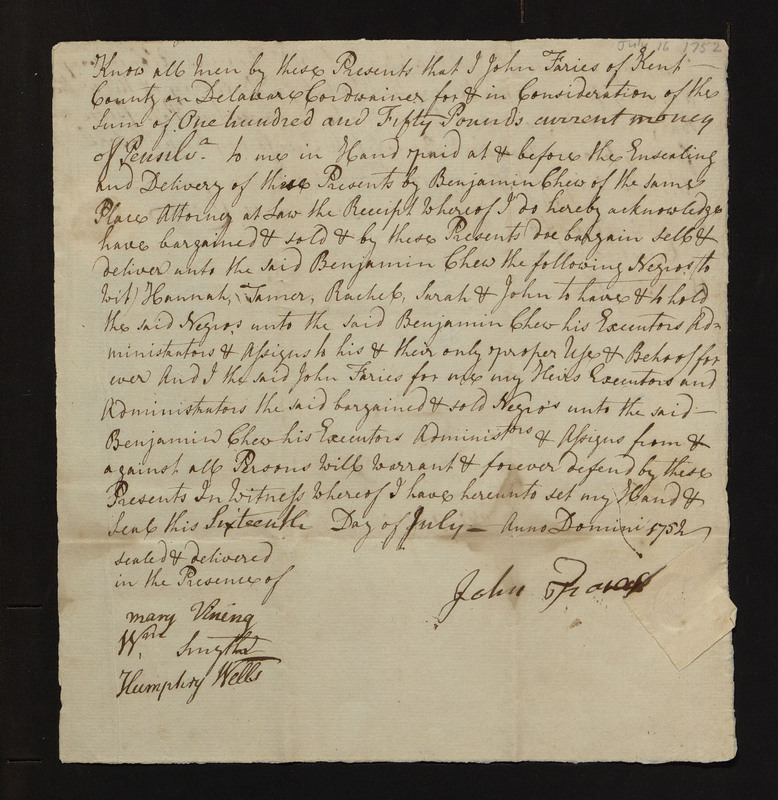 July 16 1752
Know all Men by these Presents that I John Faries of Kent
County on Delaware Cordwainer for & in Consideration of the
Sum of One hundred and Fifty Pounds current money
of Pensilv.a to me in Hand paid at & before the Ensealing
and Delivery of these Presents by Benjamin Chew of the same
Place Attorney at Law the Receipt whereof I do hereby acknowledge
have bargained & sold & by these Presents doe bargain sell &
deliver unto the said Benjamin Chew the following Negros (to
wit) Hannah, Tamer, Rachel, Sarah & John to have & to hold
the said Negro's unto the said Benjamin Chew his Executors Ad=
ministrators & Assigns to his & their only proper Use & Behoof for
ever And I the said John Faries for me my Heirs Executors and
Administrators the said bargained & sold Negro's unto the said —
Benjamin Chew his Executors Administors & Assigns from &
against all Persons will warrant & forever defend by these
Presents In Witness whereof I have hereunto set my Hand &
Seal this Sixteenth Day of July — Anno Domini 1752
sealed & delivered
in the Presence of
John
mary Vining
Wm. Smyth
Humphry Wells